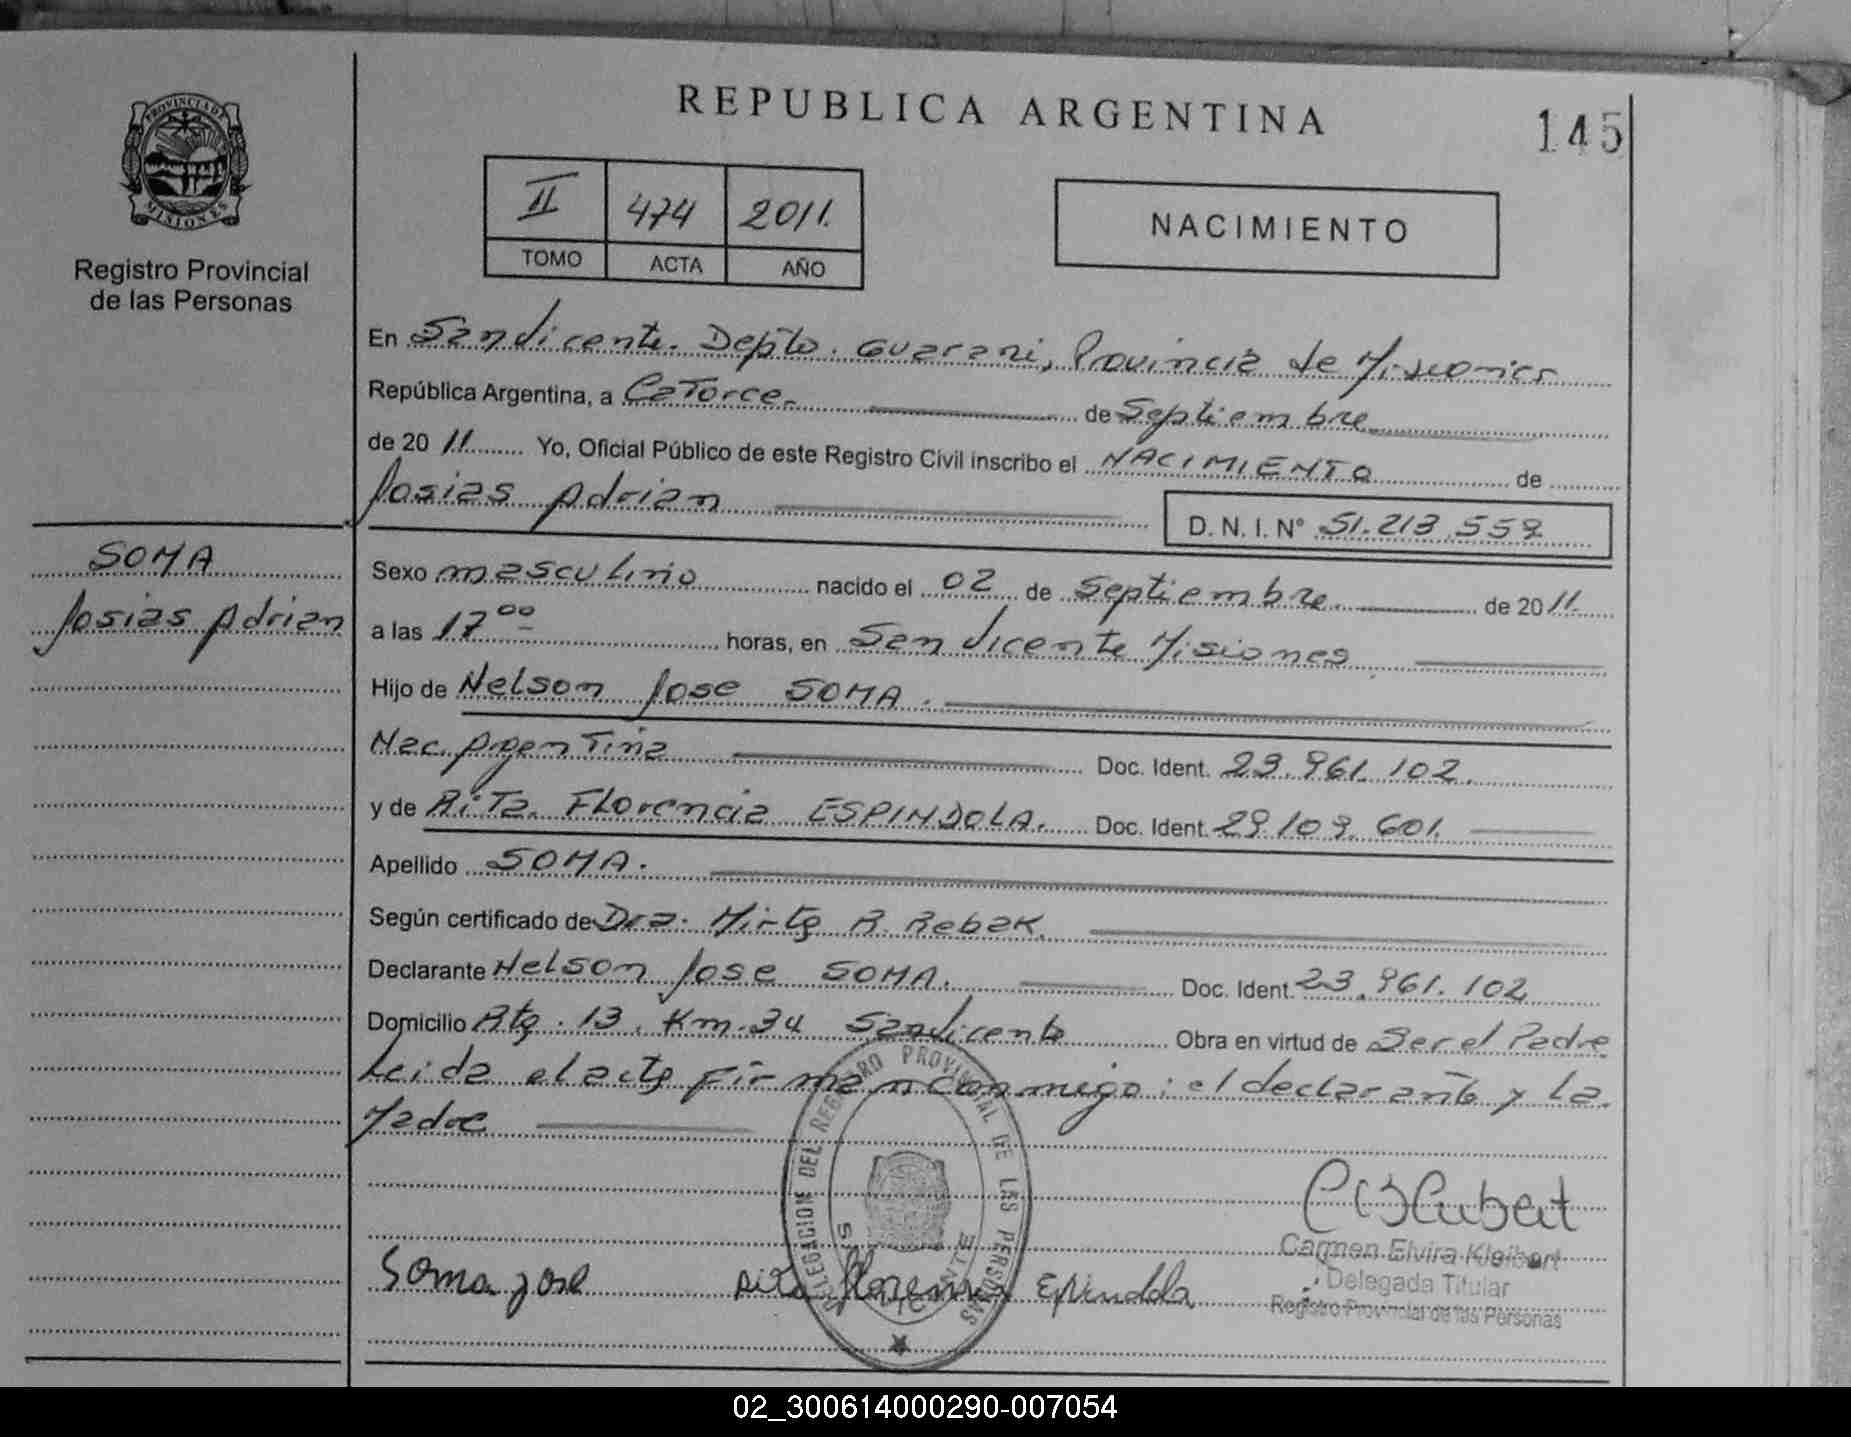 REPUBLICA ARGENTINA
145
PROVINCIA DE
MISIONES
Registro Provincial
de las Personas
II 474 2011.
TOMO ACTA AÑO
NACIMIENTO
En San Vicente. Depto. Guarani, Provincia de Misiones
República Argentina, a Catorce. de Septiembre
de 20 11 Yo, Oficial Público de este Registro Civil inscribo el NACIMIENTO de
Josias Adrian D. N. I. N° 51.213.559
SOMA
Josias Adrian
Sexo masculino nacido el 02 de Septiembre. de 20 11.
a las 17 00 horas, en San Vicente Misiones
Hijo de Nelson Jose SOMA.
Nac. Argentina Doc. Ident. 23.961.102.
y de Rita Florencia ESPINDOLA. Doc. Ident. 29.109.601.
Apellido SOMA.
Según certificado de Dra. Mirta R. Rebak.
Declarante Nelson Jose SOMA. Doc. Ident. 23.961.102
Domicilio Rta. 13. Km. 34 San Vicente Obra en virtud de Ser el Padre
Leida el acta firman conmigo: el declarante y La
Madre
DELEGACION DEL REGISTRO PROVINCIAL DE LAS PERSONAS
Soma jose Rita florencia Espindola
Carmen Elvira Kleibert
Delegada Titular
Registro Provincial de las Personas
02_300614000290-007054